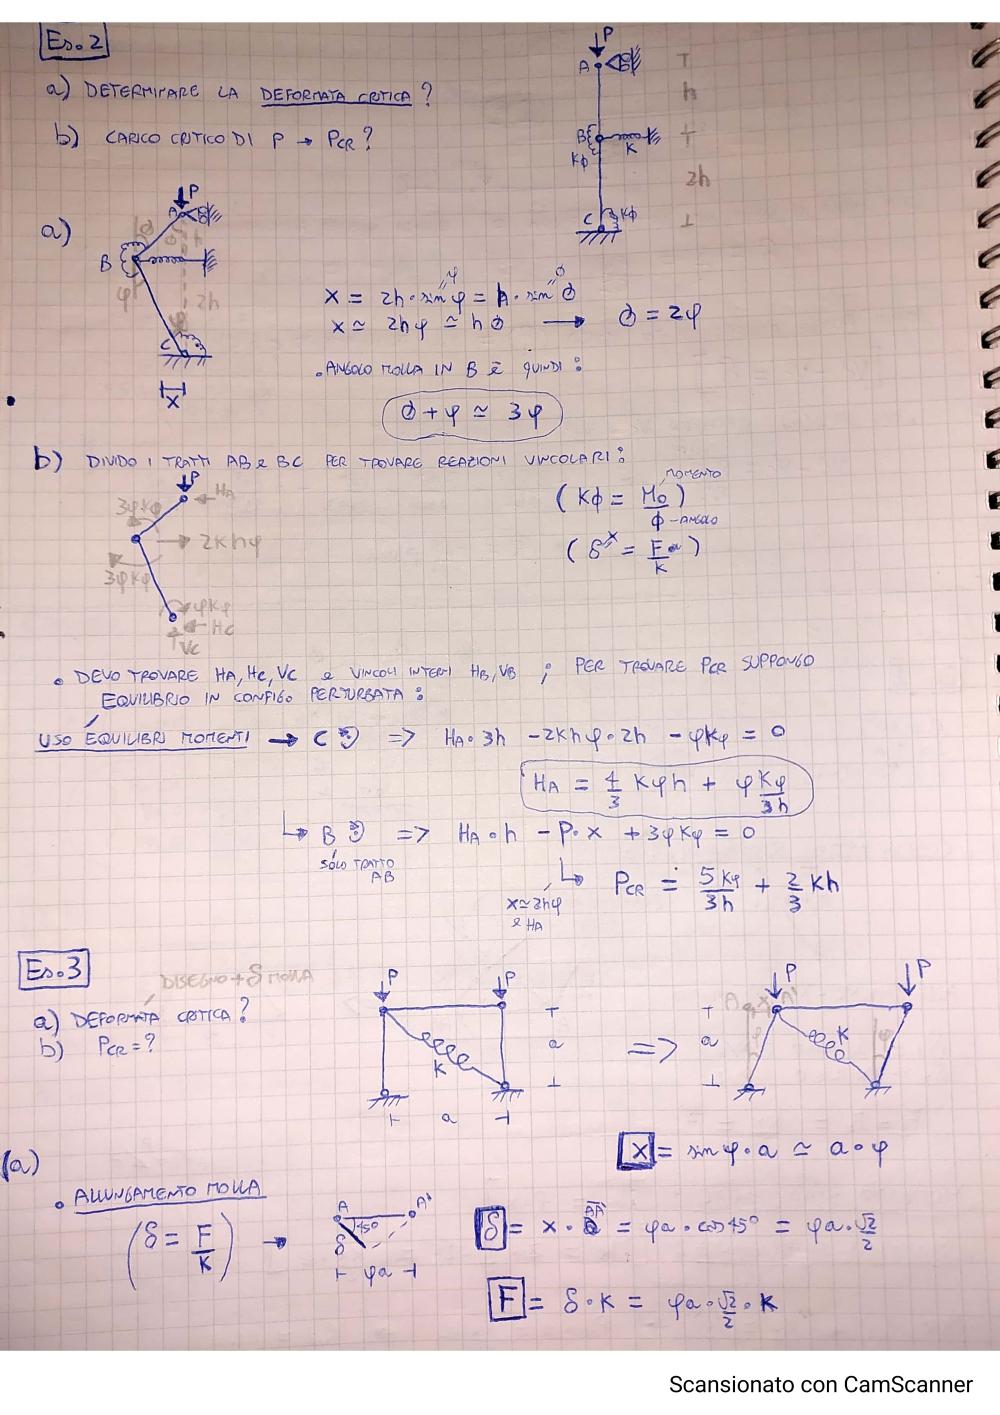 Es.2
P
A
a) DETERMINARE LA DEFORMATA CRITICA?
h
b) CARICO CRITICO DI P → PCR?
B
K
Kϕ
2h
C Kϕ
a)
P
A
ϕ
B
φ
2h
C
X
X = 2h · sin φ = h · sin ϕ
X ≃ 2hφ ≃ hϕ → ϕ = 2φ
• ANGOLO MOLLA IN B È QUINDI:
ϕ + φ ≃ 3φ
b) DIVIDO I TRATTI AB e BC PER TROVARE REAZIONI VINCOLARI:
P
HA
3φKφ
2Khφ
3φKφ
φKφ
HC
VC
MOMENTO
(Kϕ = M0/ϕ) - ANGOLO
(δ = F/K) X
• DEVO TROVARE HA, HC, VC e VINCOLI INTERNI HB, VB ; PER TROVARE PCR SUPPONGO
EQUILIBRIO IN CONFIG. PERTURBATA:
USO EQUILIBRI MOMENTI → C => HA·3h - 2Khφ·2h - φKφ = 0
HA = 4/3 Kφh + φ Kφ/3h
↳ B => HA·h - P·X + 3φKφ = 0
SOLO TRATTO
AB
X≃2hφ
e HA
↳ PCR = 5Kφ/3h + 2/3 Kh
Es.3
DISEGNO + δ MOLLA
a) DEFORMATA CRITICA?
b) PCR = ?
P P
K
a
a
=>
P P
A x A'
φ φ
K
a
X = sin φ · a ≃ a · φ
(a)
• ALLUNGAMENTO MOLLA
(δ = F/K) →
A A'
45°
δ
φa
δ = X · = φa · cos 45° = φa · √2/2
F = δ · K = φa · √2/2 · K
Scansionato con CamScanner